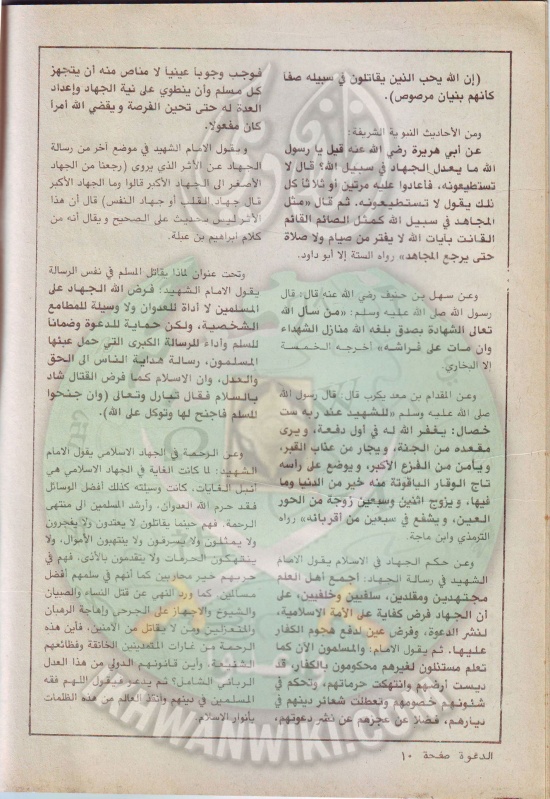 (إن الله يحب الذين يقاتلون في سبيله صفا
كأنهم بنيان مرصوص).
ومن الأحاديث النبوية الشريفة:
عن أبي هريرة رضي الله عنه قيل يا رسول
الله ما يعدل الجهاد في سبيل الله؟ قال لا
تستطيعونه، فأعادوا عليه مرتين أو ثلاثا كل
ذلك يقول لا تستطيعونه. ثم قال «مثل
المجاهد في سبيل الله كمثل الصائم القائم
القانت بآيات الله لا يفتر من صيام ولا صلاة
حتى يرجع المجاهد» رواه الستة إلا أبو داود.
وعن سهل بن حنيف رضي الله عنه قال: قال
رسول الله صلى الله عليه وسلم: «من سأل الله
تعالى الشهادة بصدق بلغه الله منازل الشهداء
وان مات على فراشه» أخرجه الخمسة
الا البخاري.
وعن المقدام بن معد يكرب قال: قال رسول الله
صلى الله عليه وسلم «للشهيد عند ربه ست
خصال: يغفر الله له في أول دفعة، ويرى
مقعده من الجنة، ويجار من عذاب القبر،
ويأمن من الفزع الأكبر، ويوضع على رأسه
تاج الوقار الياقوتة منه خير من الدنيا وما
فيها، ويزوج اثنين وسبعين زوجة من الحور
العين، ويشفع في سبعين من أقربائه» رواه
الترمذي وابن ماجة.
وعن حكم الجهاد في الاسلام يقول الامام
الشهيد في رسالة الجهاد: أجمع أهل العلم
مجتهدين ومقلدين، سلفيين وخلفيين، على
أن الجهاد فرض كفاية على الأمة الاسلامية،
لنشر الدعوة، وفرض عين لدفع هجوم الكفار
عليها. ثم يقول الامام: والمسلمون الآن كما
تعلم مستذلون لغيرهم محكومون بالكفار، قد
ديست أرضهم وانتهكت حرماتهم، وتحكم في
شئونهم خصومهم وتعطلت شعائر دينهم في
ديارهم، فضلا عن عجزهم عن نشر دعوتهم،
فوجب وجوبا عينيا لا مناص منه أن يتجهز
كل مسلم وأن ينطوي على نية الجهاد وإعداد
العدة له حتى تحين الفرصة ويقضي الله أمرا
كان مفعولا.
ويقول الامام الشهيد في موضع آخر من رسالة
الجهاد عن الأثر الذي يروى (رجعنا من الجهاد
الأصغر الى الجهاد الأكبر قالوا وما الجهاد الأكبر
قال جهاد القلب أو جهاد النفس) قال أن هذا
الأثر ليس بحديث على الصحيح ويقال أنه من
كلام ابراهيم بن عبلة.
وتحت عنوان لماذا يقاتل المسلم في نفس الرسالة
يقول الامام الشهيد: فرض الله الجهاد على
المسلمين لا أداة للعدوان ولا وسيلة للمطامع
الشخصية، ولكن حماية للدعوة وضمانا
للسلم وأداء للرسالة الكبرى التي حمل عبئها
المسلمون، رسالة هداية الناس الى الحق
والعدل، وان الاسلام كما فرض القتال شاد
بالسلام فقال تبارك وتعالى (وان جنحوا
للسلم فاجنح لها وتوكل على الله).
وعن الرحمة في الجهاد الاسلامي يقول الامام
الشهيد: لما كانت الغاية في الجهاد الاسلامي هي
أنبل الغايات، كانت وسيلته كذلك أفضل الوسائل
فقد حرم الله العدوان، وأرشد المسلمين الى منتهى
الرحمة، فهم حينما يقاتلون لا يعتدون ولا يفجرون
ولا يمثلون ولا يسرفون ولا ينتهبون الأموال، ولا
ينتهكون الحرمات ولا يتقدمون بالأذى، فهم في
حربهم خير محاربين كما أنهم في سلمهم أفضل
مسالمين، كما ورد النهي عن قتل النساء والصبيان
والشيوخ والاجهاز على الجرحى وإهاجة الرهبان
والمنعزلين ومن لا يقاتل من الآمنين، فأين هذه
الرحمة من غارات المتمدينين الخانقة وفظائعهم
الشنيعة، وأين قانونهم الدولي من هذا العدل
الرباني الشامل؟ ثم يدعو فيقول اللهم فقه
المسلمين في دينهم وانقذ العالم من هذه الظلمات
بأنوار الاسلام.
الدعوة صفحة ١٠
IKHWANWIKI.COM